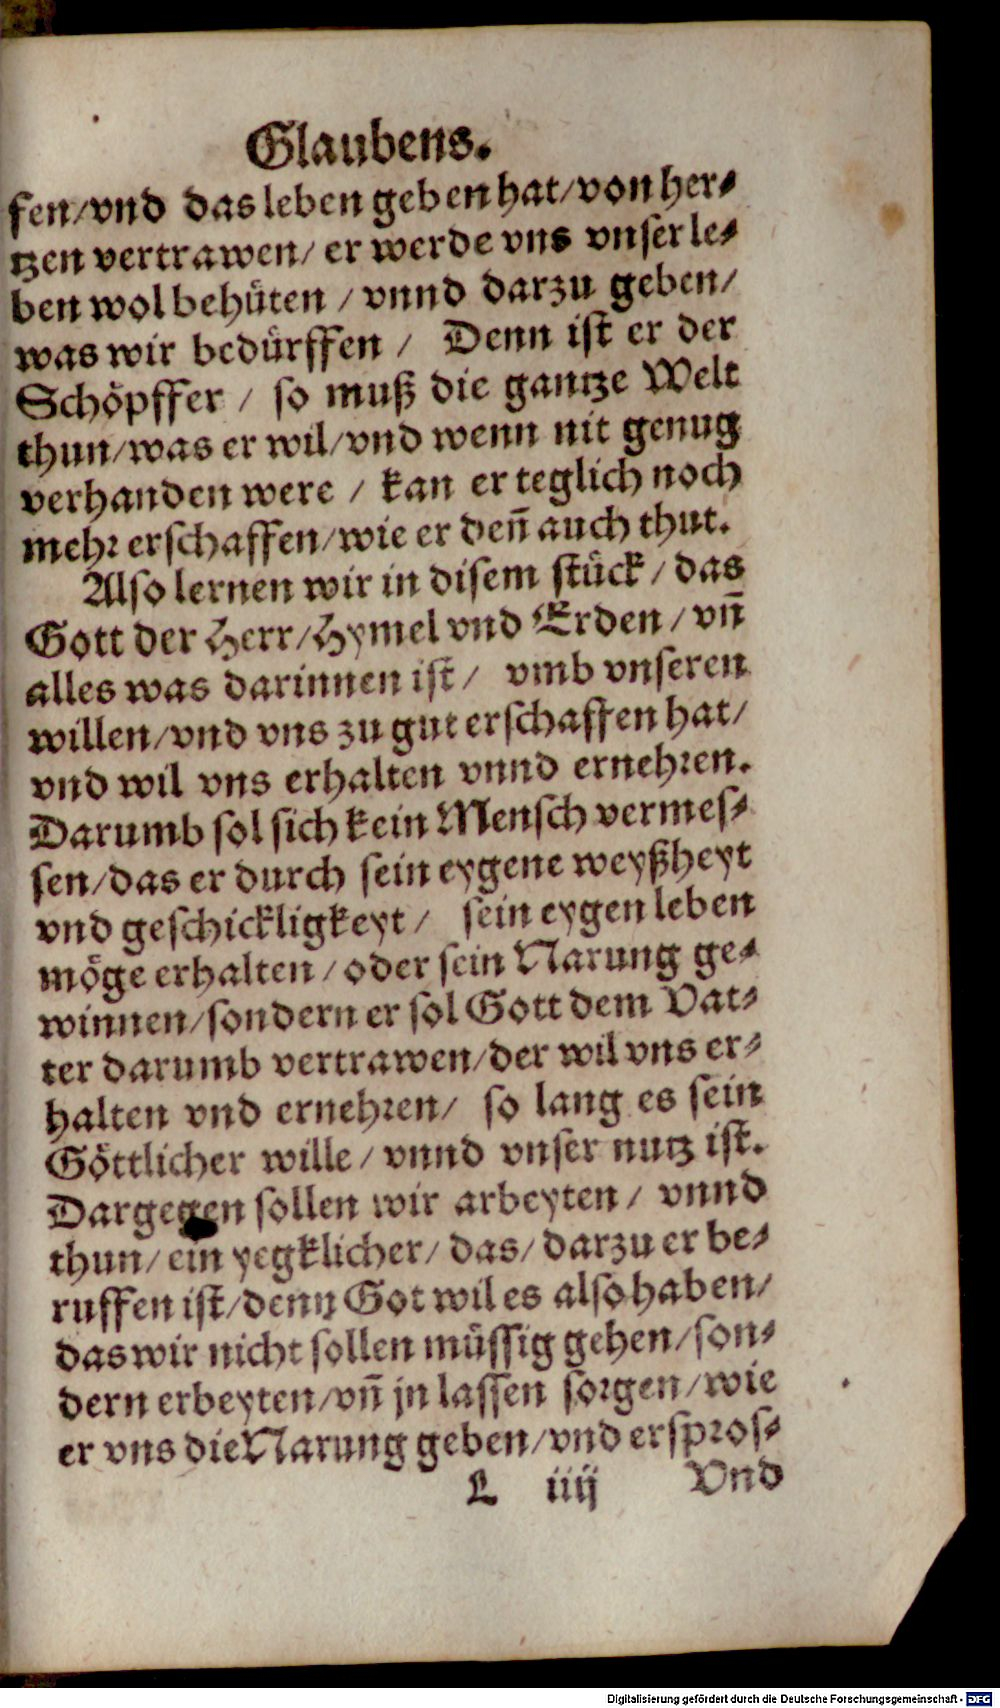 Glaubens.
fen/vnd das leben geben hat/von her⸗
tzen vertrawen/ er werde vns vnser le⸗
ben wol behüten / vnnd darzu geben/
was wir bedürffen / Denn ist er der
Schöpffer / so muß die gantze Welt
thun/was er wil/vnd wenn nit genug
verhanden were / kan er teglich noch
mehr erschaffen/wie er deñ auch thut.
Also lernen wir in disem stück / das
Gott der Herr/Hymel vnd Erden / vñ
alles was darinnen ist / vmb vnseren
willen/vnd vns zu gut erschaffen hat/
vnd wil vns erhalten vnnd ernehren.
Darumb sol sich kein Mensch vermes⸗
sen/das er durch sein eygene weyßheyt
vnd geschickligkeyt / sein eygen leben
möge erhalten / oder sein Narung ge⸗
winnen/sondern er sol Gott dem Vat⸗
ter darumb vertrawen/der wil vns er⸗
halten vnd ernehren/ so lang es sein
Göttlicher wille / vnnd vnser nutz ist.
Dargegen sollen wir arbeyten / vnnd
thun/ ein yegklicher/ das/ darzu er be⸗
ruffen ist/denn Got wil es also haben/
das wir nicht sollen müssig gehen/son⸗
dern erbeyten/vñ jn lassen sorgen/wie
er vns die Narung geben/vnd erspros⸗
L iiij Vnd
Digitalisierung gefördert durch die Deutsche Forschungsgemeinschaft - DFG